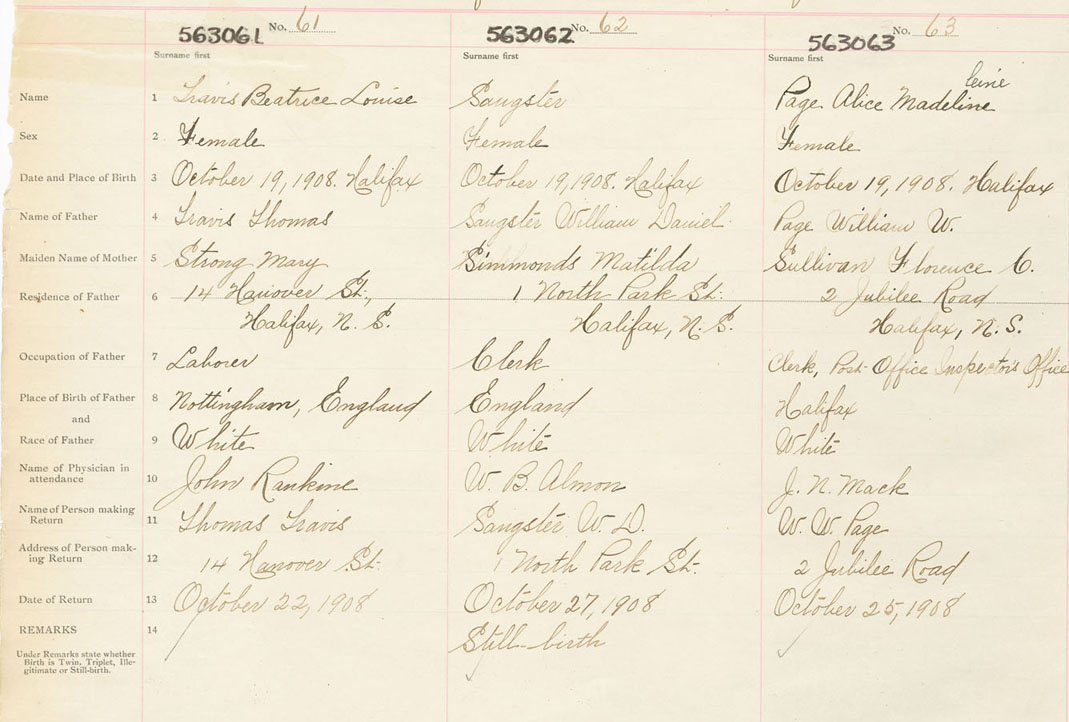 No. 61 No. 62 No. 63
563061 563062 563063
Surname first Surname first Surname first
leine
Name 1 Travis Beatrice Louise Sangster Page Alice Madeline
Sex 2 Female Female Female
Date and Place of Birth 3 October 19, 1908. Halifax October 19, 1908. Halifax October 19, 1908. Halifax
Name of Father 4 Travis Thomas Sangster William Daniel. Page William W.
Maiden Name of Mother 5 Strong Mary Simmonds Matilda Sullivan Florence C.
Residence of Father 6 14 Hanover St., 1 North Park St. 2 Jubilee Road
Halifax, N. S. Halifax, N. S. Halifax, N. S.
Occupation of Father 7 Laborer Clerk Clerk, Post Office Inspector's Office
Place of Birth of Father 8 Nottingham, England England Halifax
and
Race of Father 9 White White White
Name of Physician in
attendance 10 John Rankine W. B. Almon J. N. Mack
Name of Person making
Return 11 Thomas Travis Sangster W. D. W. W. Page
Address of Person mak-
ing Return 12 14 Hanover St. 1 North Park St. 2 Jubilee Road
Date of Return 13 October 22, 1908 October 27, 1908 October 25, 1908
REMARKS 14 Still-birth
Under Remarks state whether
Birth is Twin, Triplet, Ille-
gitimate or Still-birth.